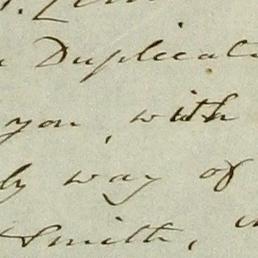 Duplicat
you, with
by way of
Smith,